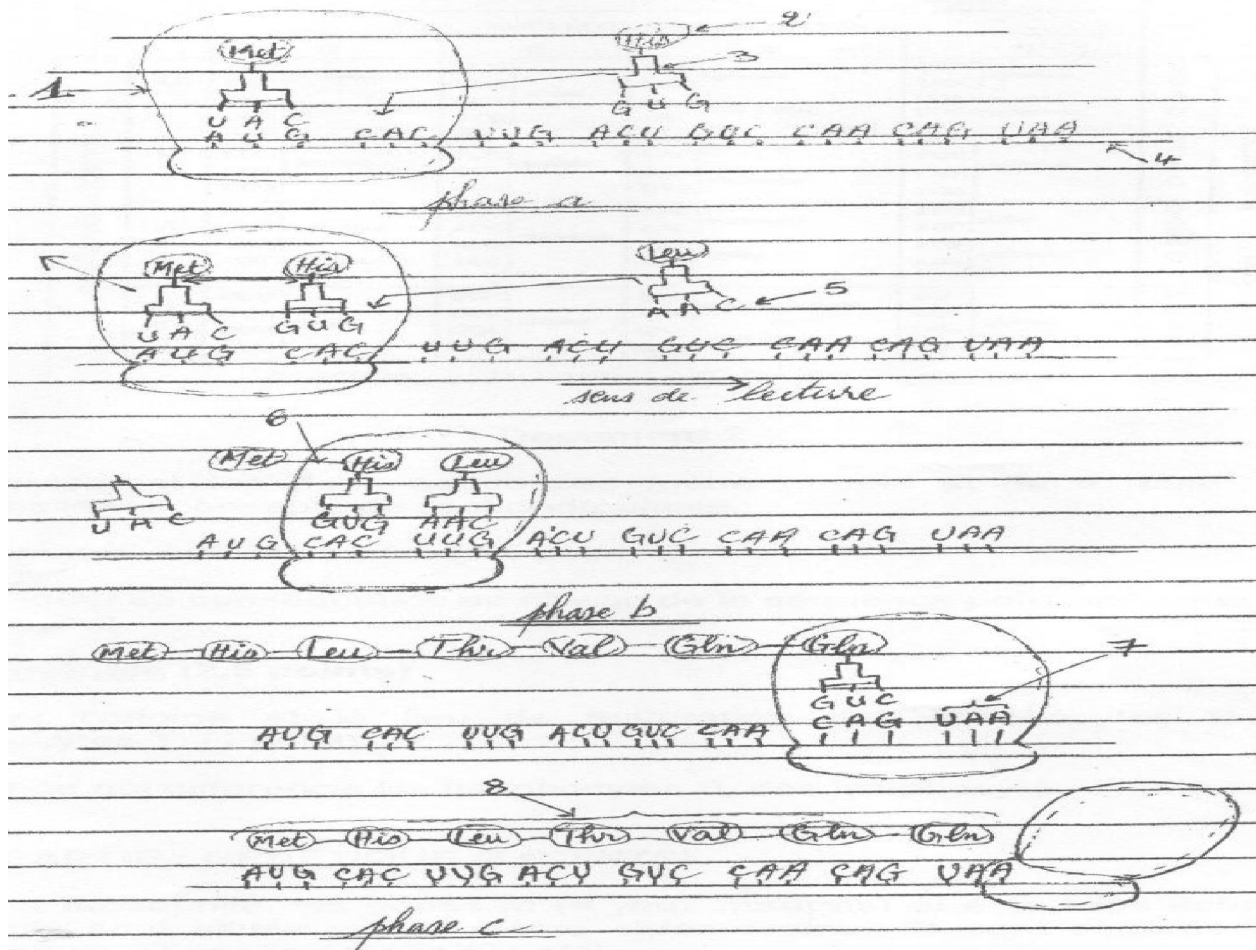 Met His 2
1 3
U A C G U G
A U G CAC UUG ACU GUC CAA CAG UAA
4
phase a
Met His Leu
5
U A C GUG A A C
AUG CAC UUG ACU GUC CAA CAG UAA
sens de lecture
6
Met His Leu
U A C GUG AAC
AUG CAC UUG ACU GUC CAA CAG UAA
phase b
Met His Leu Thr Val Gln Gln 7
G U C
AUG CAC UUG ACU GUC CAA C A G UAA
8
Met His Leu Thr Val Gln Gln
AUG CAC UUG ACU GUC CAA CAG UAA
phase c